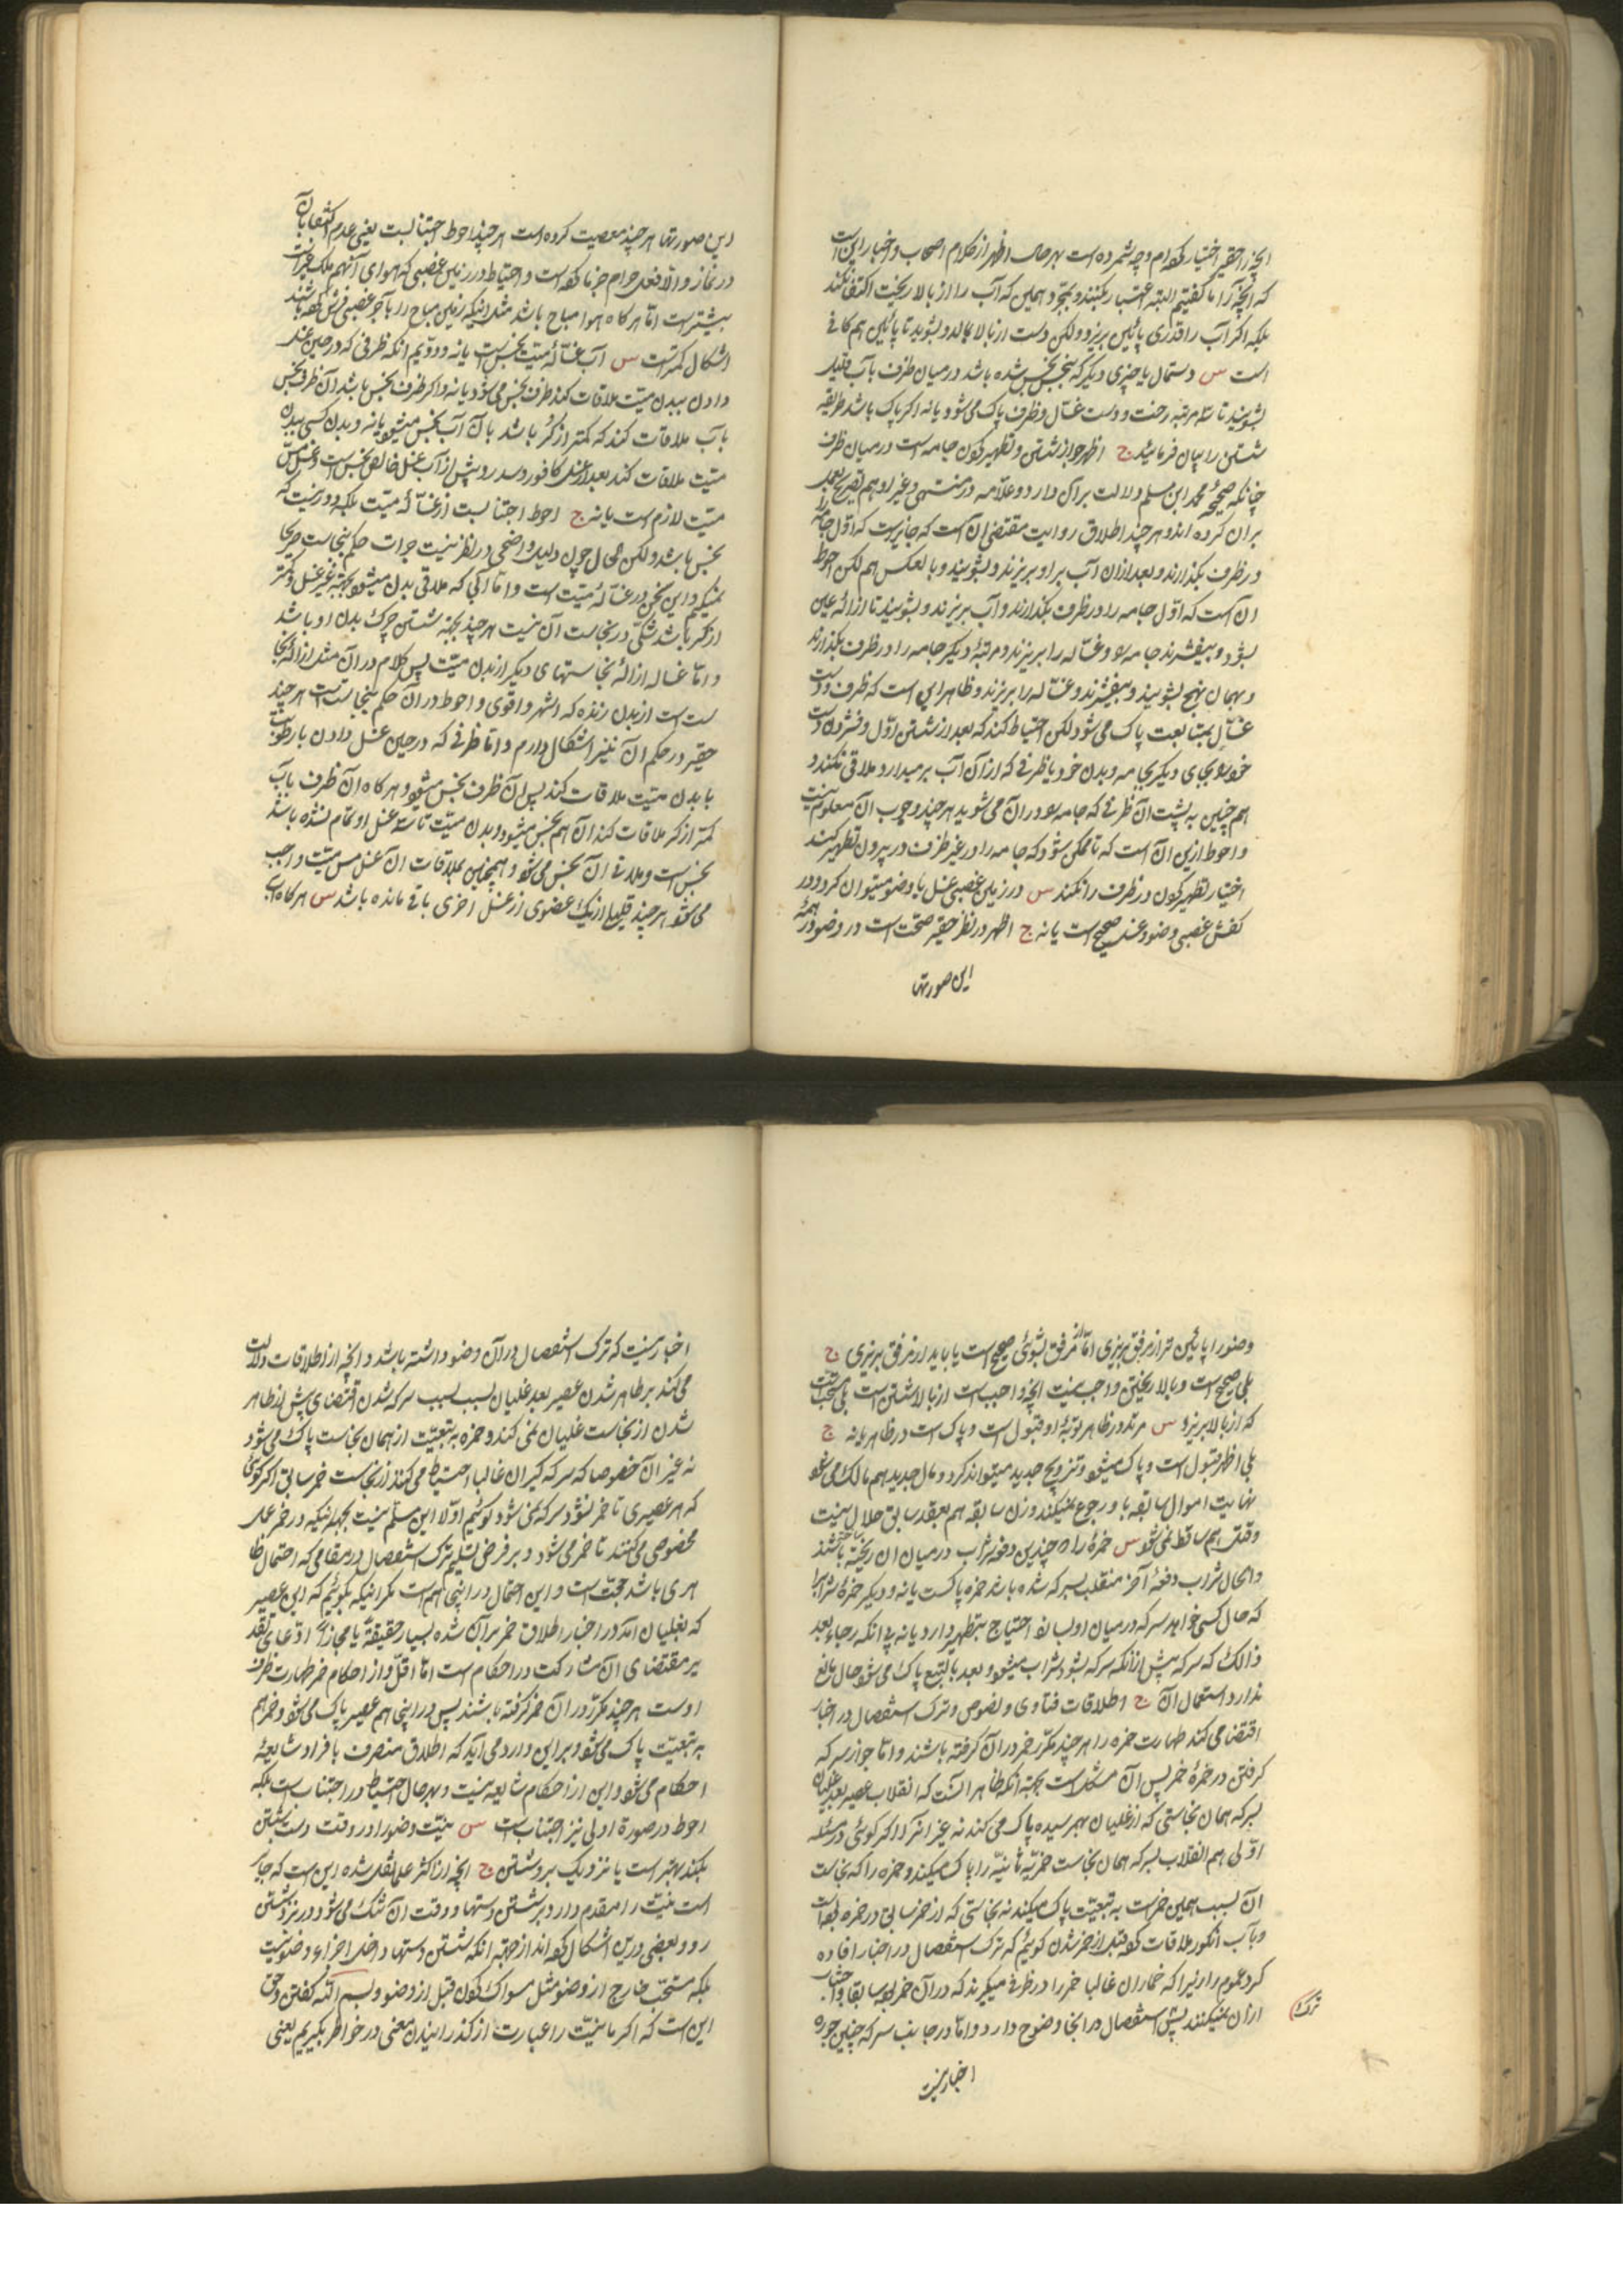 انچه را حقیر اختیار کرده‌ام وجه شمرده است بهر حال اظهر از کلام اصحاب و اخبار این است
که انچه را ما گفتیم البته اعتبار بکنند و بمجرد همین که آب را از بالا ریخت اکتفا نکند
بلکه اگر آب را قدری پائین بریزد ولکن دست از بالا بمالد و بشوید تا پائین هم کافی
است س دستمال یا چیزی دیگر که نجس شده باشد در میان ظرف با آب قلیل
بشویند تا سه مرتبه رخت و دست غسّال و ظرف پاک می شود یا نه اگر پاک باشد طریقه
شستن را بیان فرمائید ج اظهر جواز شستن و تطهیر کردن جامه است در میان ظرف
چنانکه صحیحه محمد ابن مسلم دلالت بر آن دارد و علّامه در منتهی و غیر او هم تصریح بعمل
بر آن کرده اند و هر چند اطلاق روایت مقتضی آن است که جایز است که اوّل جامه را
در ظرف بگذارند و بعد از آن آب بر او بریزند و بشویند و بالعکس هم لکن احوط
ان است که اوّل جامه را در ظرف بگذارند و آب بریزند و بشویند تا ازاله عین
بشود و بیفشرند جامه را و غسّاله را بریزند و مرتبهٔ دیگر جامه را در ظرف بگذارند
و بهمان نهج بشویند و بیفشرند و غسّاله را بریزند و ظاهر این است که ظرف و دست
غسّال بمتابعت پاک می شود ولکن احتیاط کند که بعد از شستن اوّل و فشردن دست
خود را بجای دیگر جامه و بدن خود یا ظرفی که از آن آب بر میدارد ملاقی نکند و
هم چنین به پشت آن ظرفی که جامه را در آن می شوید هر چند وجوب آن معلوم نیست
و احوط ازین آن است که تا ممکن شود که جامه را در غیر ظرف در بیرون تطهیر کنند
اختیار تطهیر کردن در ظرف را نکنند س در زمین غصبی غسل یا وضو میتوان کرد و در
کفش غصبی وضو و غسل صحیح است یا نه ج اظهر در نظر حقیر صحّت است در وضو در همهٔ
این صورتها
این صورتها هر چند معصیت کرده است هر چند احوط اجتنابست یعنی عدم اکتفا بآن
در نماز و الّا فعل حرام جزما کرده است و احتیاط در زمین غصبی که هوای آنهم ملک غیر است
بیشتر است امّا هر کاه هوا مباح باشد مثل اینکه زمین مباح را بآجر غصبی فرش کرده باشند
اشکال کمتر است س آب غسّالهٔ میّت نجس است یا نه و دوّیم انکه ظرفی که در حین غسل
دادن ببدن میّت ملاقات کند ظرف نجس می شود یا نه و اکر ظرف نجس باشد آن ظرف نجس
بآب ملاقات کند که کمتر از کر باشد با آن آب نجس میشود یا نه و بدن کسی ببدن
میّت ملاقات کند بعد از غسل کافور و سدر و پیش از آب غسل خالص نجس است و غسل مس
میّت لازم است یا نه ج احوط اجتنابست از غسّالهٔ میّت بلکه دور نیست که
نجس باشد ولکن الحال چون دلیل واضحی در نظر نیست جرات حکم بنجاست صریحا
نمیکنم و این سخن در غسّالهٔ میّت است و امّا آبی که ملاقی بدن میشود بجهة غیر غسل و کمتر
از کر باشد شکی در نجاست آن نیست هر چند بجهة شستن چرک بدن او باشد
و امّا غساله ازالهٔ نجاستهای دیگر از بدن میّت پس کلام در آن مثل ازالهٔ نجا
ست است از بدن زنده که اشهر و اقوی و احوط در آن حکم بنجاستست هر چند
حقیر در حکم آن نیز اشکال دارم و امّا ظرفی که در حین غسل دادن با رطوبت
با بدن میّت ملاقات کند پس آن ظرف نجس میشود و هر کاه آن ظرف بآب
کمتر از کر ملاقات کند آن هم نجس میشود و بدن میّت تا سه غسل او تمام نشده باشد
نجس است و ملاقی آن نجس می شود و همچنین بملاقات آن غسل مس میّت واجب
می شود هر چند قلیلی از یک عضوی از غسل اخری باقی مانده باشد س هر کاه آب
وضو را پائین تر از مرفق بریزی امّا از مرفق بشوئی صحیح است یا باید از مرفق بریزی ج
بلی صحیح است و ببالا ریختن واجب نیست انچه واجب است از بالا شستن است بلی مستحب است
که از بالا بریزد س مرتد در ظاهر توبهٔ او قبول است و پاک است در ظاهر یا نه ج
بلی اظهر قبول است و پاک میشود و تزویج جدید میتواند کرد و مال جدید هم مالک می شود
نهایت اموال سابقه باو رجوع نمیکند و زن سابقه هم بعقد سابق حلال نیست
و قتل هم ساقط نمی شود س خمرهٔ را که چندین دفعه شراب در میان ان ریخته باشند
و الحال شراب دفعهٔ آخر منقلب بسرکه شده باشد خمره پاکست یا نه و دیگر خمرهٔ شراب را
که حال کسی خواهد سرکه در میان او بسازد احتیاج بتطهیر دارد یا نه پی انکه رجاء بعد
ذالک که سرکه پیش از آنکه سرکه بشود شراب میشود و بعد بالتبع پاک می شود حال مانع
ندارد استعمال آن ج اطلاقات فتاوی و نصوص و ترک استفصال در اخبار
اقتضا می کند طهارت خمره را هر چند مکرّر خمر در آن کرفته باشند و امّا جواز سرکه
کرفتن در خمرهٔ خمر پس آن مشکل است بجهة انکه ظاهر آنست که انقلاب عصیر بعد غلیان
بسرکه همان نجاستی که از غلیان بهمرسیده پاک می کند نه غیر آنرا اکر کوئی در مسئله
اوّلی هم انقلاب بسرکه همان نجاست خمریّه ثانیّه را پاک میکند و خمره را که نجاست
ان بسبب همین خمر است به تبعیّت پاک میکند نه نجاستی که از خمر سابق در خمره بوده است
و بآب انکور ملاقات کرده قبل از خمر شدن کوئیم که ترک استفصال در اخبار افاده
کرد عموم را زیرا که خماران غالبا خمر را در ظرفی میکیرند که در آن خمر بوده سابقا و اجتناب
از آن نمیکنند پس استفصال در انجا وضوح دارد و امّا در جانب سرکه چنین جوره
ترک
اخبار نیست
اخبار نیست که ترک استفصال در آن وضوح داشته باشد و انچه از اطلاقات دلالت
می کند بر طاهر شدن عصیر بعد غلیان بسبب سرکه شدن اقتضای بیش از طاهر
شدن از نجاست غلیان نمی کند و خمره به تبعیّت از همان نجاست پاک می شود
نه غیر آن خصوصا که سرکه کیران غالبا احتیاط می کنند از نجاست خمر سابق اکر کوئی
که هر عصیری تا خمر نشود سرکه نمی شود کوئیم اوّلا این مسلّم نیست بجهة اینکه در خمر عمل
مخصوصی می کنند تا خمر می شود و بر فرض تسلیم ترک استفصال در مقامی که احتمال ظا
هری باشد حجّت است و این احتمال در اینجا هم است مکر اینکه بکوئیم که این عصیر
که بغلیان آمد در اخبار اطلاق خمر بر آن شده بسیار حقیقةً یا مجازاً ادّعای تقد
یر مقتضای آن مشارکت در احکام است امّا اقلّ و از احکام خمر طهارت ظرف
اوست هر چند مکرّر در آن خمر کرفته باشند پس در اینجا هم عصیر پاک می شود و خمر هم
به تبعیّت پاک می شود و بر این وارد می آید که اطلاق منصرف بافراد شایعهٔ
احکام می شود و این از احکام شایعه نیست و بهر حال احتیاط در اجتناب است بلکه
احوط در صورة اولی نیز اجتناب است س نیّت وضو را در وقت دست شستن
بکند بهتر است یا نزدیک برو شستن ج انچه از اکثر علما نقل شده این است که جایز
است نیّت را مقدم دارد بر شستن دستها و وقت ان تنک می شود در نزد شستن
رو و بعضی درین اشکال کرده اند از جهة انکه شستن دستها داخل اجزاء وضو نیست
بلکه مستحب خارج از وضو مثل مسواک کردن قبل از وضو و بسم الله کفتن و حق
این است که اکر ما نیّت را عبارت از کذرانیدن معنی در خواطر بکیریم یعنی